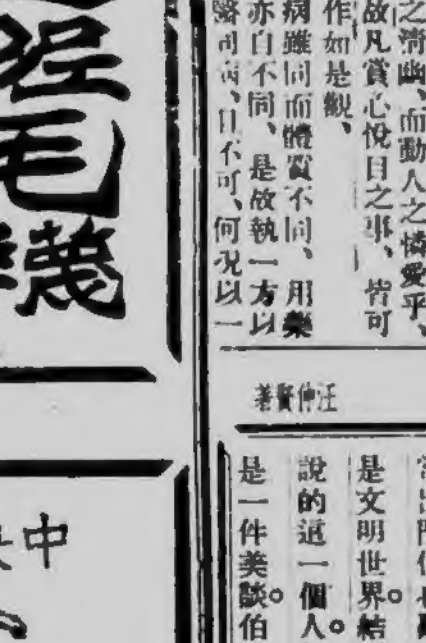 之清幽、而動人之憐愛乎、
故凡賞心悅目之事、皆可
作如是觀、
病雖同而體質不同、用藥
亦自不同、是故執一方以
醫同病、且不可、何況以一
汪仲賢著
是文明世界。結
說的這一個人。
是一件美談。伯
毛
中